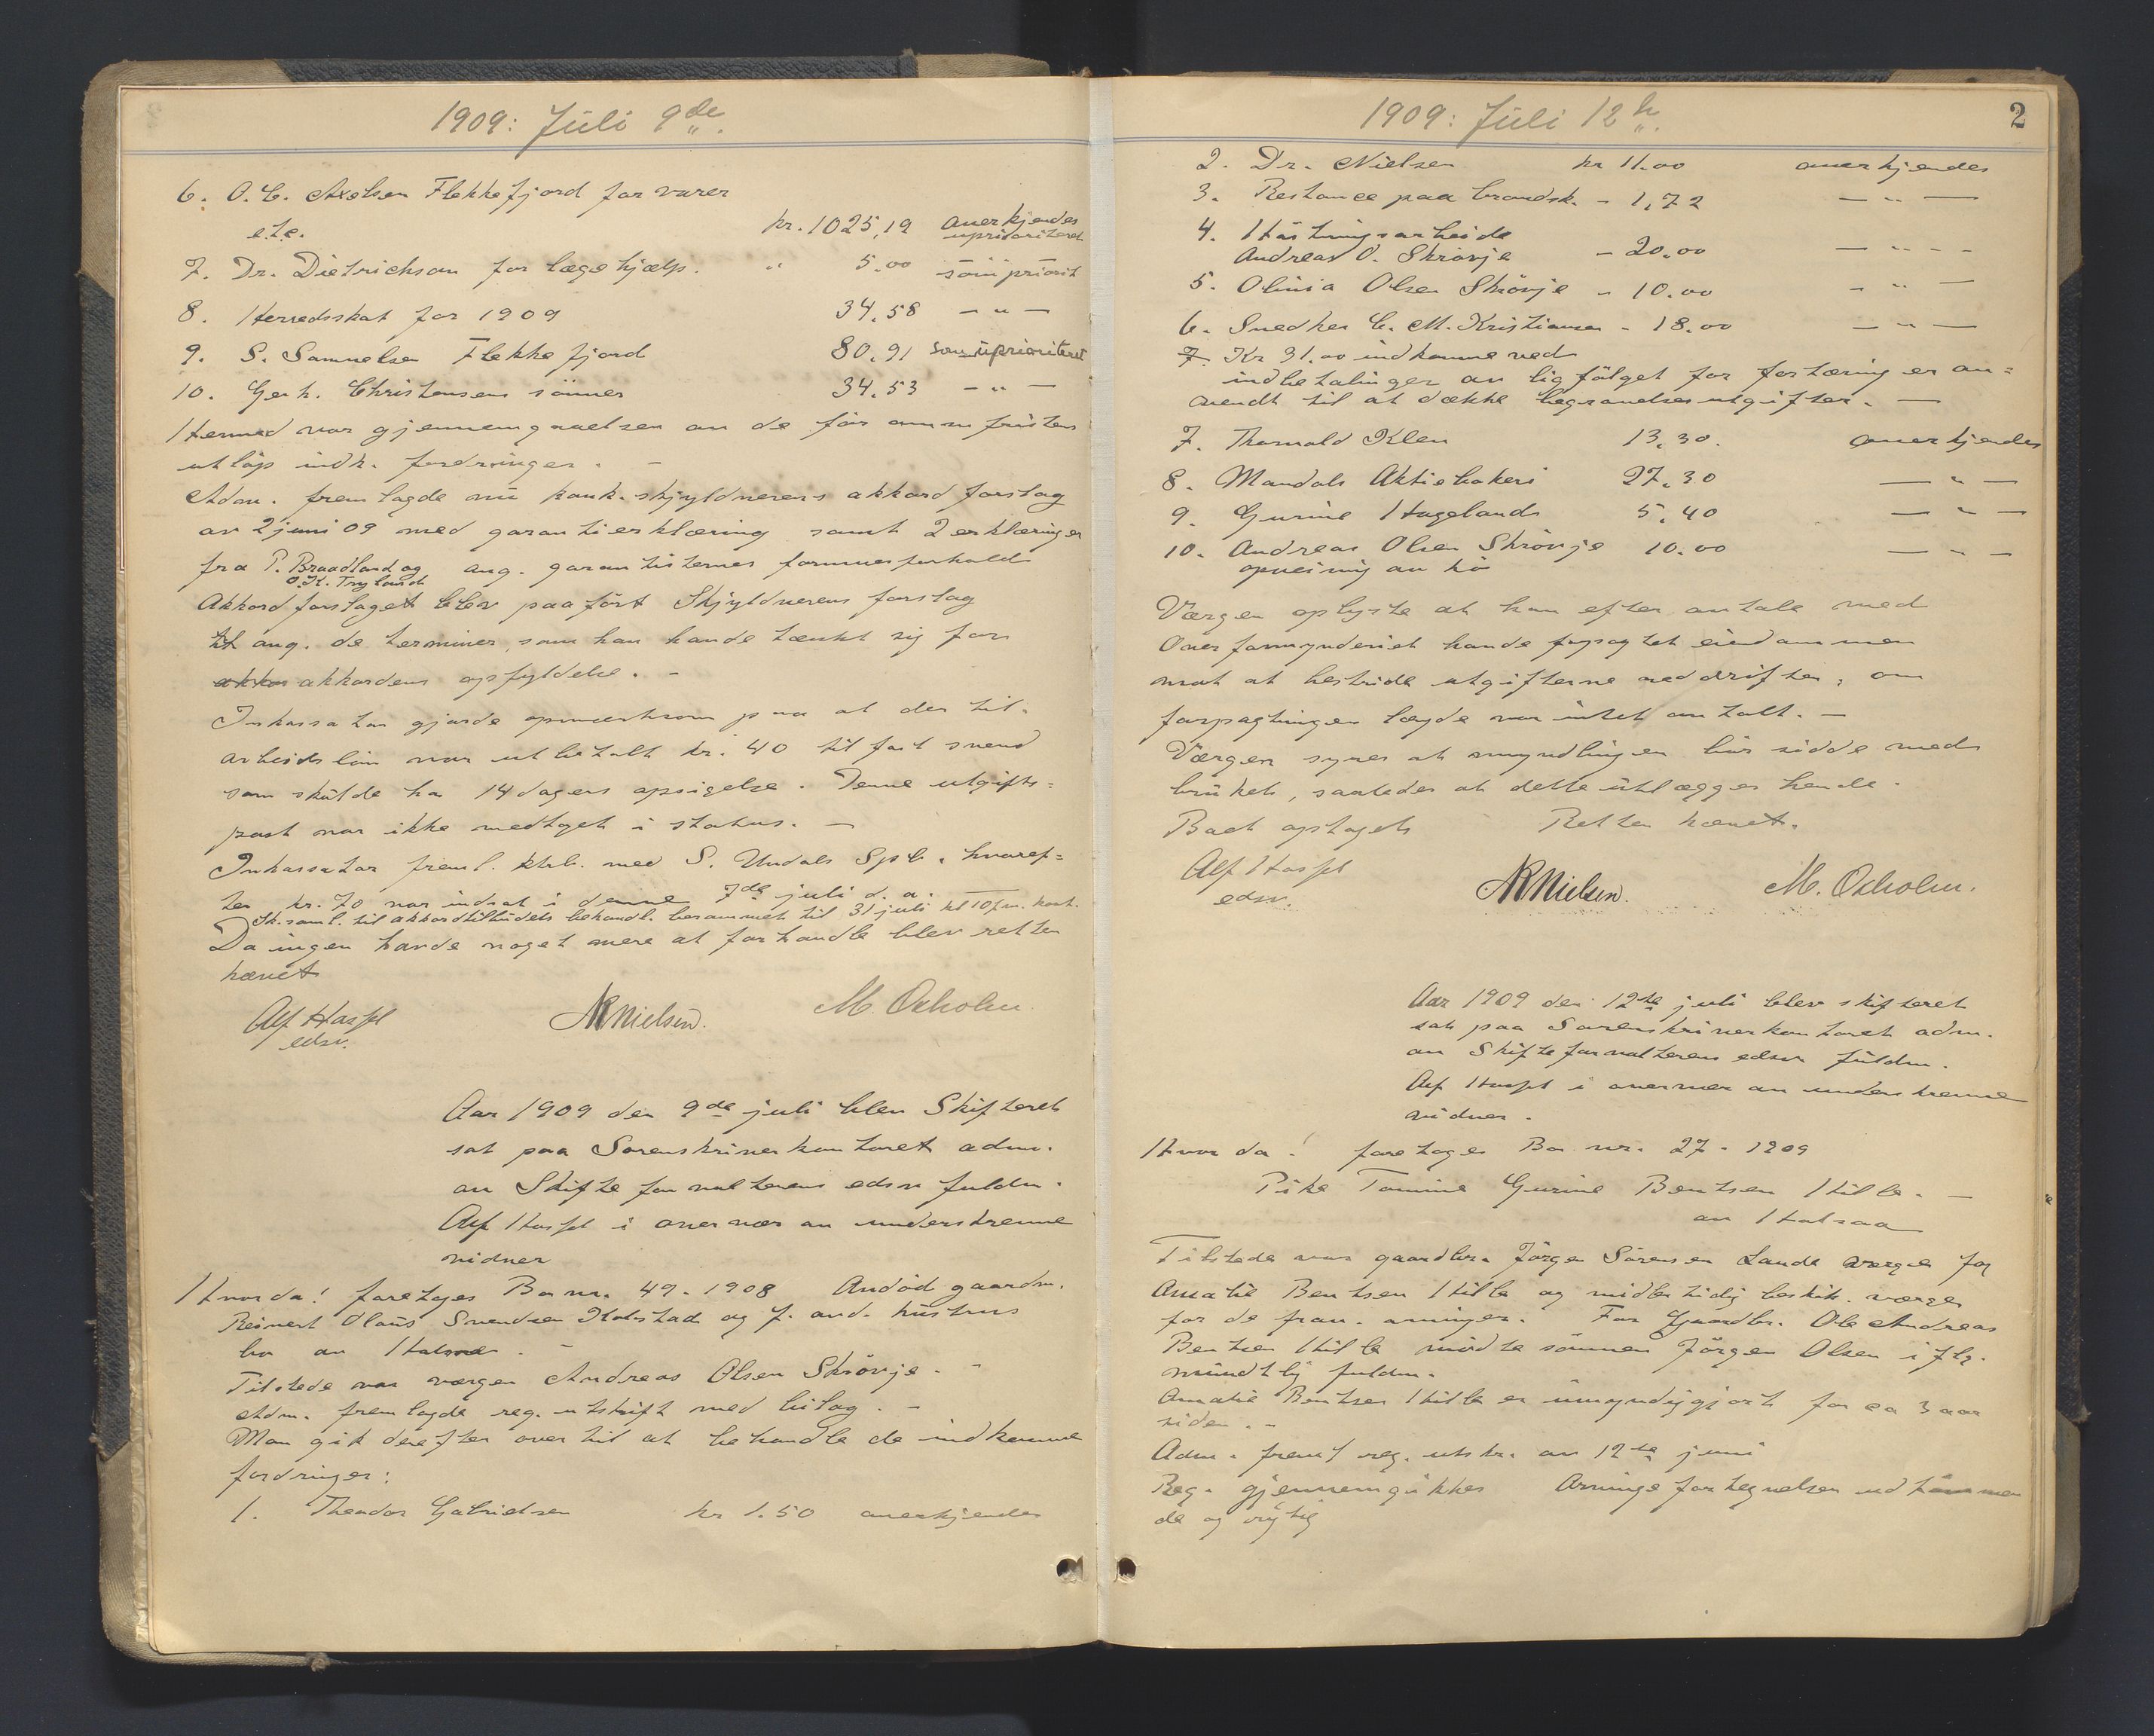 1909: Juli 9de.
6. O. C. Axelsen Flekkefjord for varer
etc. kr. 1025,19 anerkjendes
uprioriteret
7. Dr. Dietrichson for lægehjælp. " 5.00 som priorit
8. Herredsskat for 1909 34.58 — " —
9. S. Samuelsen Flekkefjord 80,91 som uprioriteret
10. Gerh. Christensens sönner 34.53 — " —
Hermed var gjennemgaaelsen av de för anm fristens
utlöp indk. fordringer. —
Adm. fremlagde nu konk. skjyldnerens akkord forslag
av 2 juni 09 med garantierklæring samt 2 erklæringer
fra P. Braadland og ang. garantisternes formuesforhold
O. K. Tryland
Akkord forslaget blev paafört Skjyldnerens forslag
ang. de terminer, som han havde tænkt sig for
akkordens opfyldelse. —
Inkassator gjorde opmerksom paa at der til
arbeidslön var utbetalt kr. 40 til fast svend
som skulde ha 14 dagers opsigelse. Denne utgifts=
post var ikke medtaget i status. —
Inkassator freml. ktrb. med S. Undals Spb. hvoref=
ter kr. 70 var indsat i denne 7de juli d. a.
Sk. saml. til akkordtilbudets behandl. berammet til 31 juli kl 10 fm. kont.
Da ingen havde noget mere at forhandle blev retten
hævet
Alf Hassel NRNielsen. M. Oxholm.
edsv.
Aar 1909 den 9de juli blev Skifteret
sat paa Sorenskriverkontoret adm.
av Skifteforvalterens edsv fuldm.
Alf Hassel i overvær av underskrevne
vidner
Hvorda! foretoges Bo nr. 49 - 1908 Andöd gaardm.
Reinert Olaus Svendsen Holstad og f. avd. hustrus
bo av Halsaa. —
Tilstede var værgen Andreas Olsen Skrövje. —
Adm. fremlagde reg. utskrift med bilag. —
Man gik derefter over til at behandle de indkomne
fordringer:
1. Theodor Gabrielsen kr 1.50 anerkjendes
1909: Juli 12te. 2
2. Dr. Nielsen kr 11.00 anerkjendes
3. Restance paa brandsk. - 1,72 — " —
4. Höstningsarbeide
Andreas O. Skrövje - 20.00 — " —
5. Olivia Olsen Skrövje - 10.00 — " —
6. Snedker C. M. Kristiansen - 18.00 — " —
7. Kr 31.00 indkomne ved
indbetalinger av ligfölget for fortæring er an=
vendt til at dække begravelsesutgifter. —
7. Thorvald Klev 13,30. anerkjendes
8. Mandals Aktiebakeri 27,30 — " —
9. Gurine Hageland 5,40 — " —
10. Andreas Olsen Skrövje 10.00 — " —
opveiing av hö
Værgen oplyste at han efter avtale med
Overformynderiet havde forpagtet eiendommen
mot at bestride utgifterne ved driften, om
forpagtningen længde var intet avtalt. —
Værgen synes at myndlingen bör sidde med
bruket, saaledes at dette utlægges hende.
Boet optaget Retten hævet.
Alf Hassel NRNielsen. M. Oxholm.
edsv.
Aar 1909 den 12te juli blev skifteret
sat paa Sorenskriverkontoret adm.
av Skifteforvalterens edsv fuldm.
Alf Hassel i overvær av underskrevne
vidner.
Hvorda! foretoges Bo nr. 27 - 1909
Pike Tomine Gurine Bentsen Hille. —
av Halsaa
Tilstede var gaardbr. Jörgen Sörensen Lande værge for
Amalie Bentsen Hille og midlertidig beskik. værge
for de frav. arvinger. For Gaardbr. Ole Andreas
Bentsen Hille mödte sönnen Jörgen Olsen i flg.
mundtlig fuldm.
Amalie Bentsen Hille er umyndiggjort for ca 3 aar
siden. —
Adm. freml reg. utskr. av 12te juni
Reg. gjennemgikkes Arvingefortegnelsen udtömmen
de og rigtig